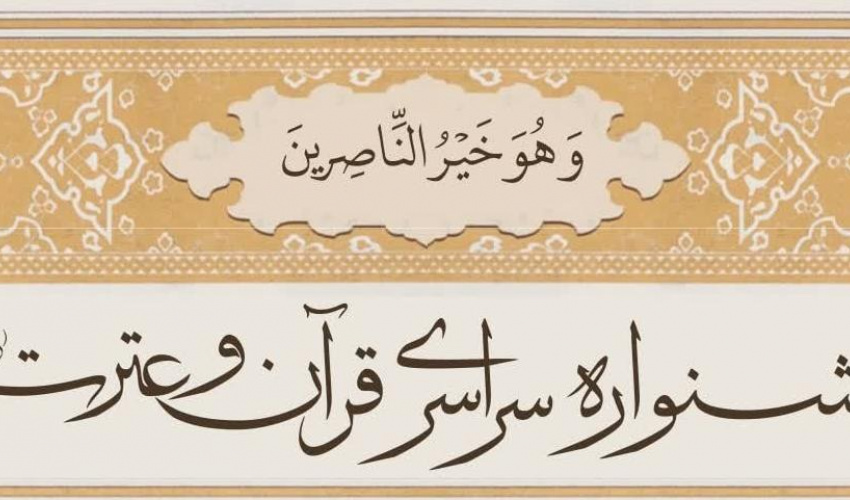 وَ هُوَ خَيْرُ النَّاصِرِينَ
شنواره سراسری قرآن و عترت